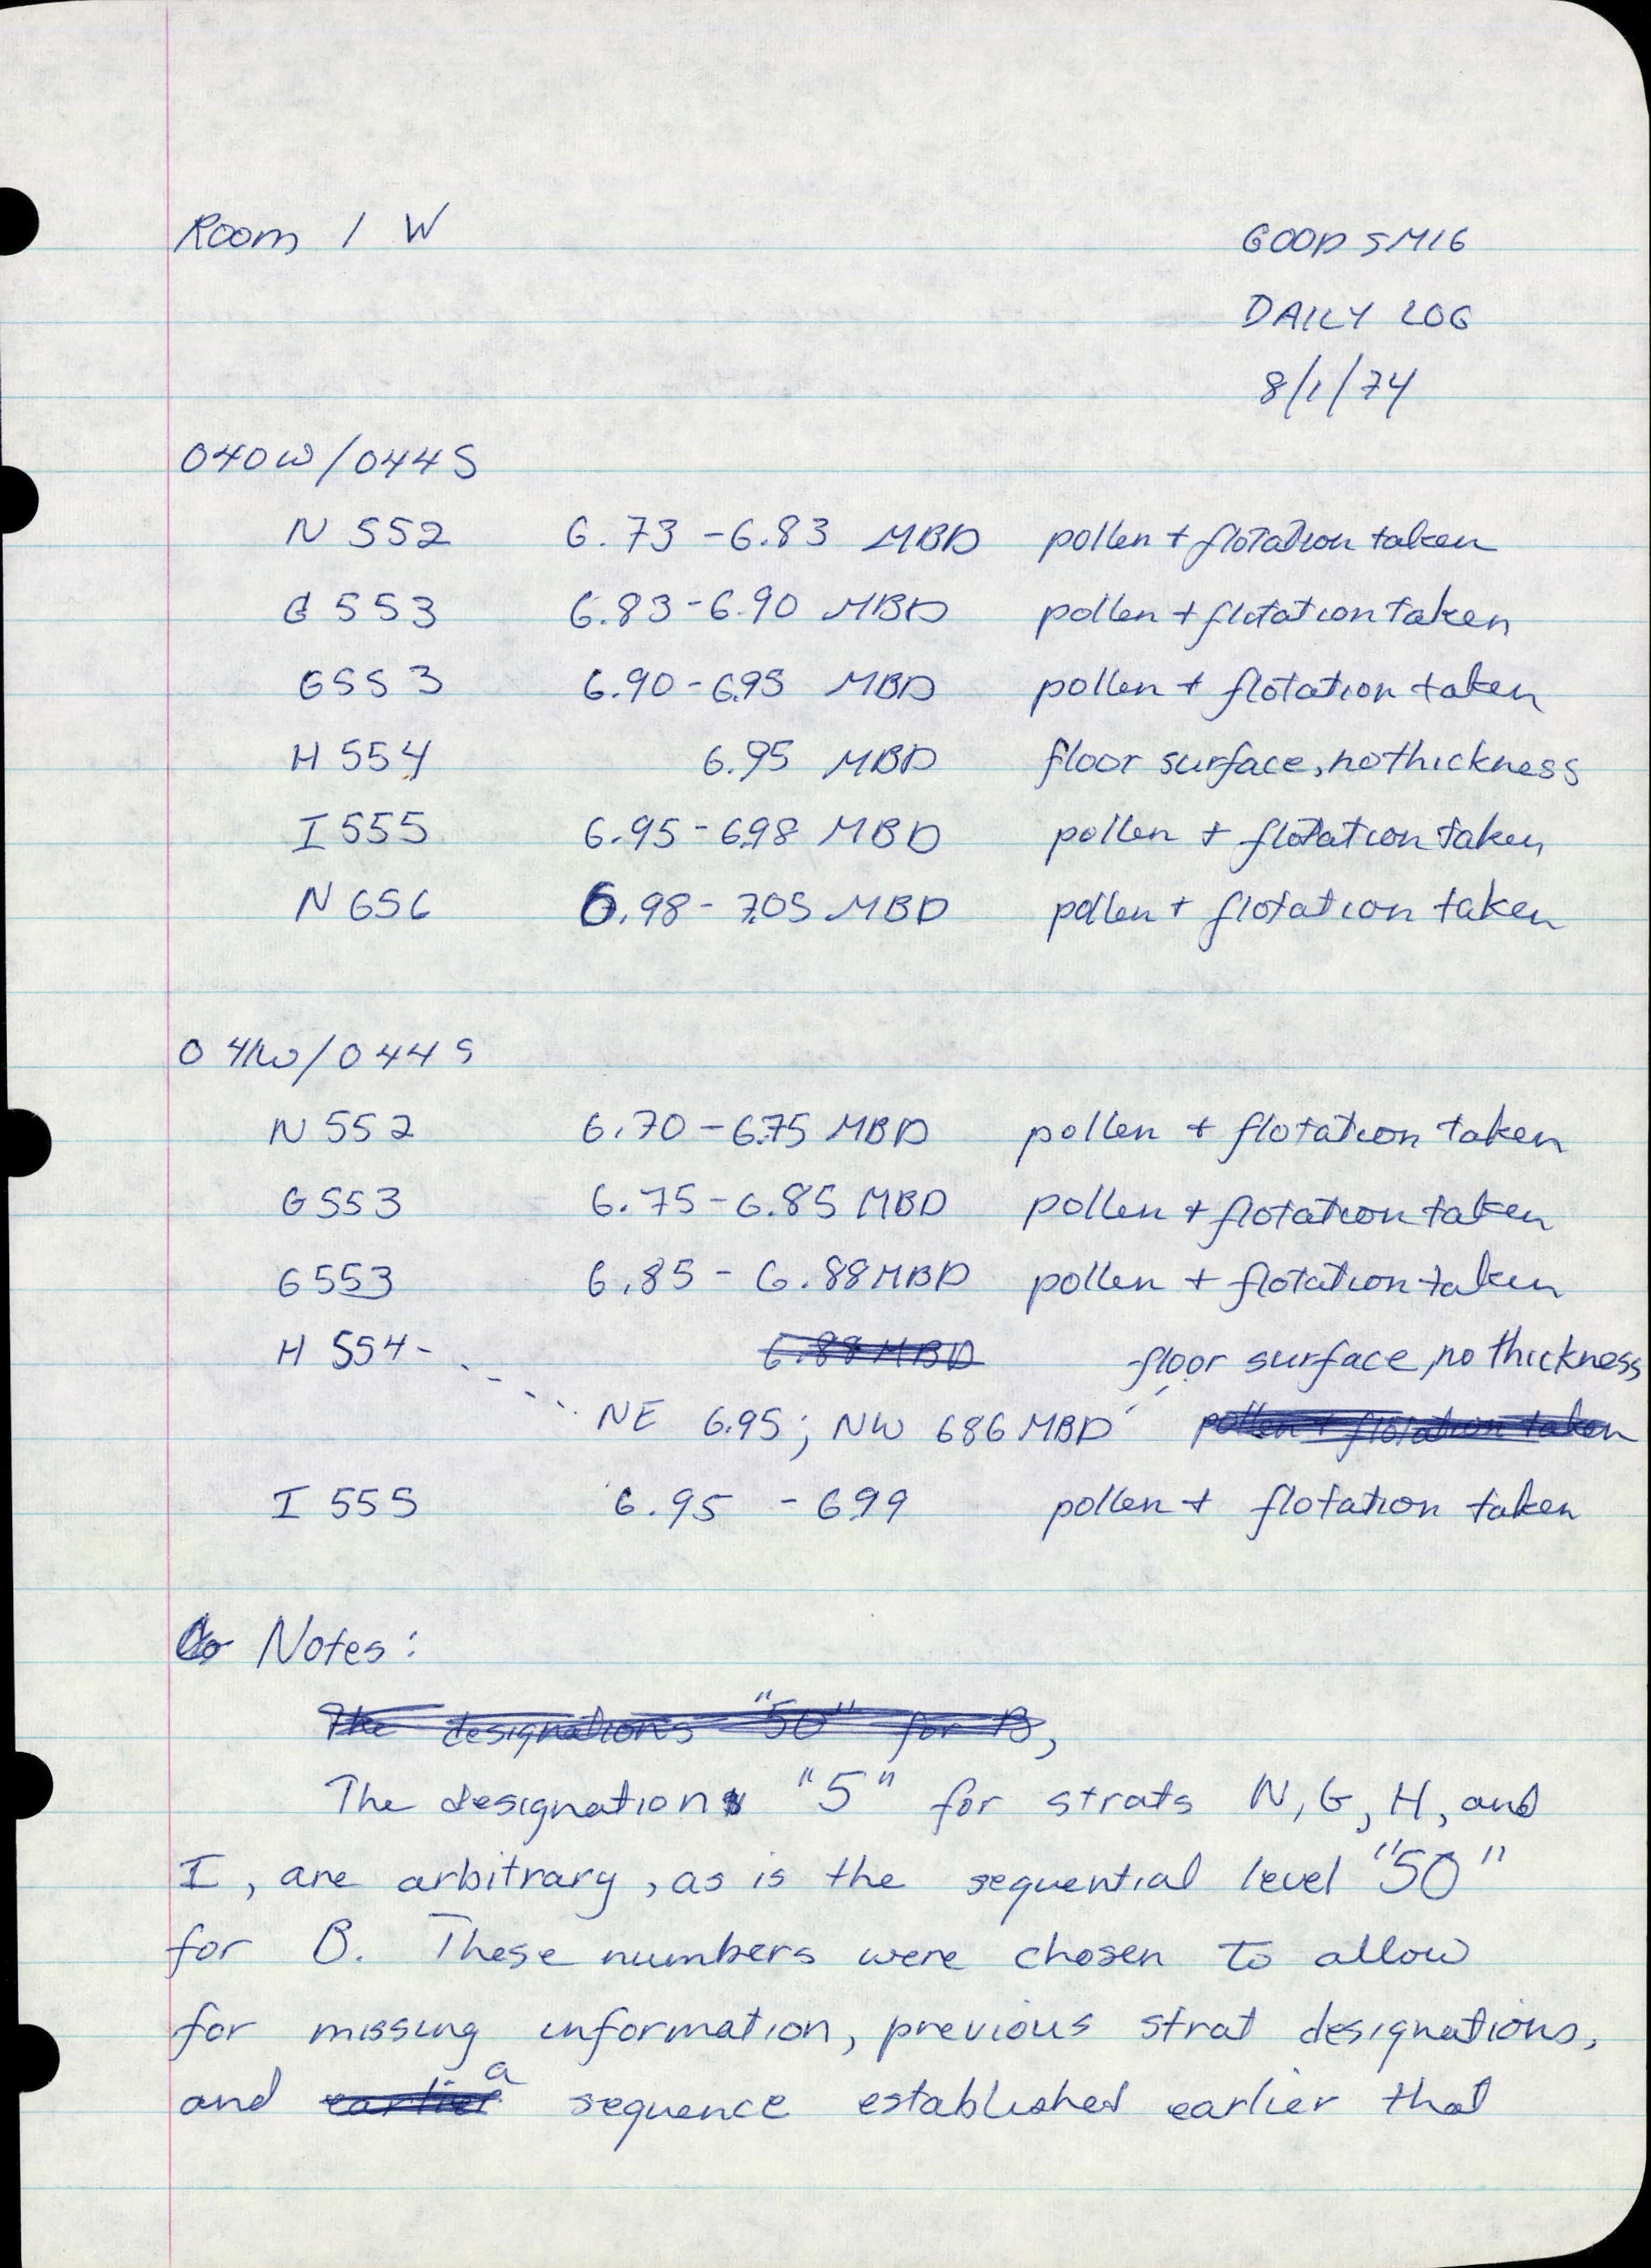 Room 1 W
GOODSMIG
DAILY LOG
8/1/74
040W/044S
N 552 6.73-6.83 MBD pollen + flotation taken
G 553 6.83-6.90 MBD pollen + flotation taken
G553 6.90-6.95 MBD pollen + flotation taken
H 554 6.95 MBD floor surface, no thickness
I 555 6.95-698 MBD pollen + flotation taken
N 656 6.98-7.05 MBD pollen + flotation taken
041W/044S
N 552 6.70-6.75 MBD pollen + flotation taken
G553 6.75-6.85 MBD pollen + flotation taken
G553 6.85-6.88 MBD pollen + flotation taken
H 554 6.88 MBD floor surface, no thickness
NE 6.95; NW 686 MBD pollen + flotation taken
I 555 6.95 - 699 pollen + flotation taken
Notes:
The designations "50" for B,
The designation "5" for strats N, G, H, and
I, are arbitrary, as is the sequential level "50"
for B. These numbers were chosen to allow
for missing information, previous strat designations,
and earlier a sequence established earlier that